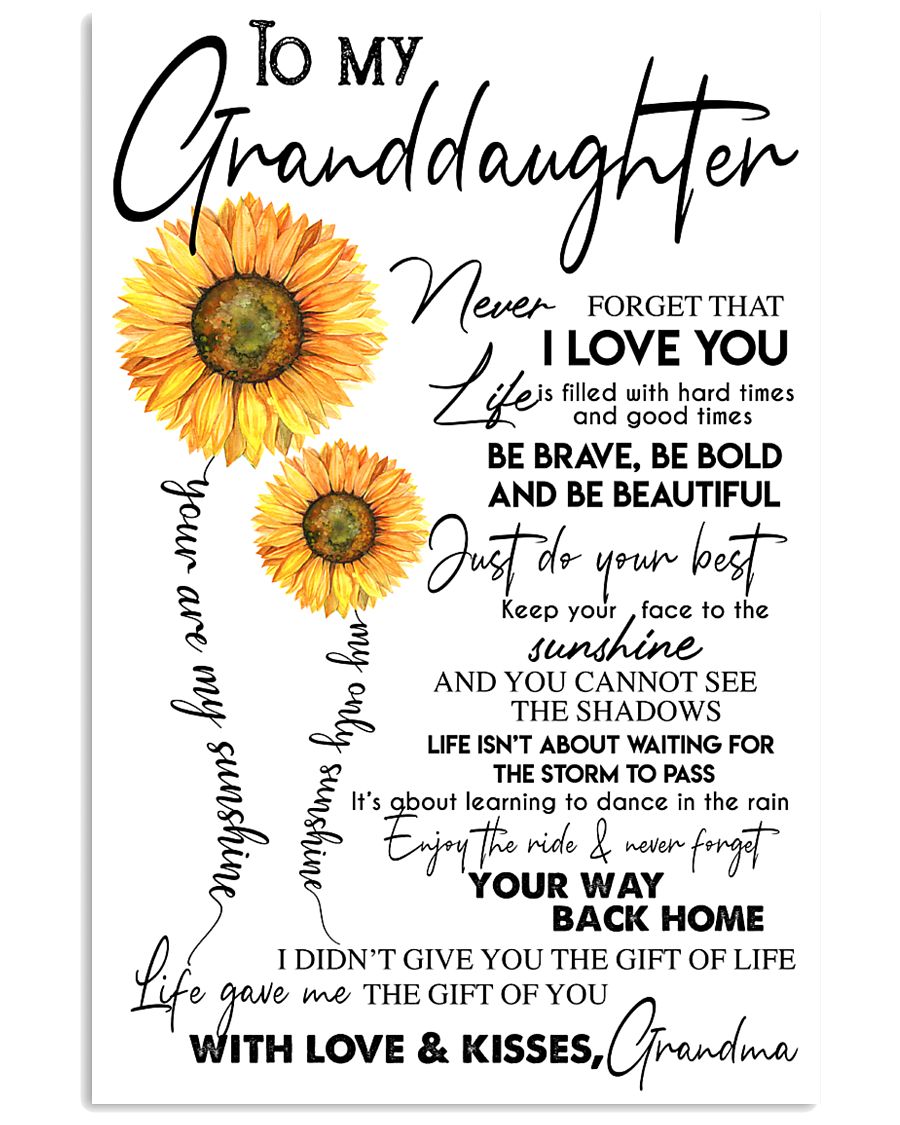 To my
Granddaughter
Never FORGET THAT
I LOVE YOU
Life is filled with hard times
and good times
BE BRAVE, BE BOLD
AND BE BEAUTIFUL
Just do your best
Keep your face to the
sunshine
AND YOU CANNOT SEE
THE SHADOWS
LIFE ISN'T ABOUT WAITING FOR
THE STORM TO PASS
It's about learning to dance in the rain
Enjoy the ride & never forget
YOUR WAY
BACK HOME
your are my sunshine
my only sunshine
I DIDN'T GIVE YOU THE GIFT OF LIFE
Life gave me THE GIFT OF YOU
WITH LOVE & KISSES, Grandma